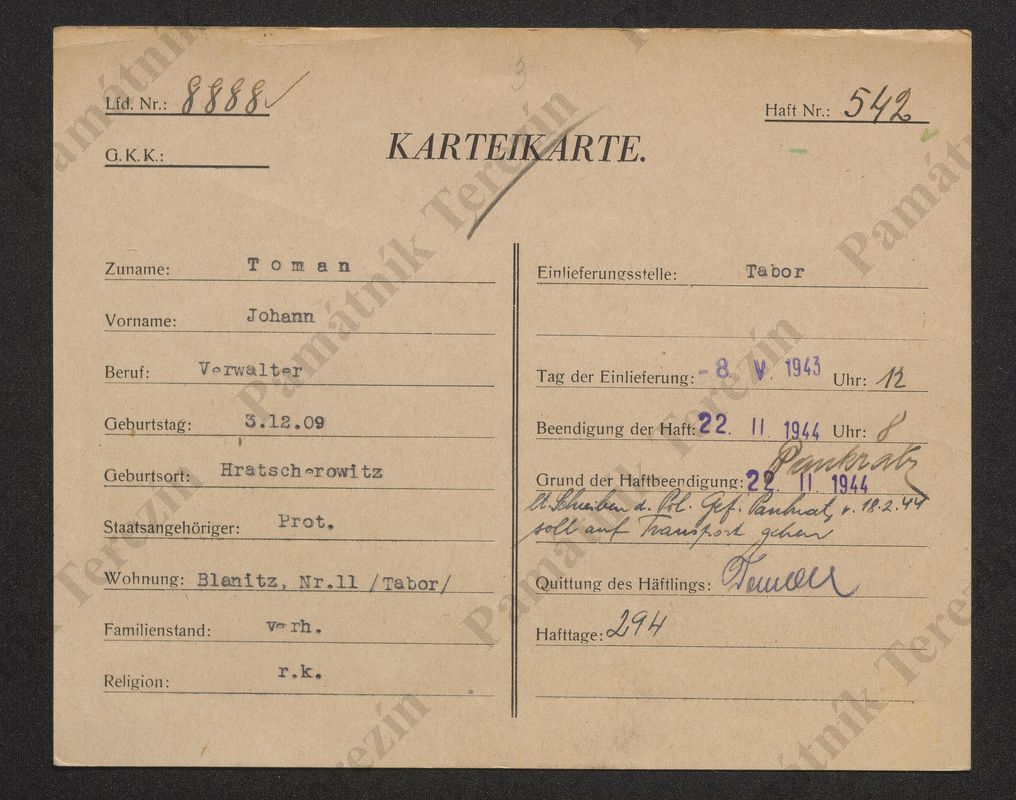 3
Lfd. Nr.: 8888
Haft Nr.: 542
G. K. K.:
KARTEIKARTE.
Zuname: Toman
Vorname: Johann
Beruf: Verwalter
Geburtstag: 3.12.09
Geburtsort: Hratscherowitz
Staatsangehöriger: Prot.
Wohnung: Blanitz, Nr.11 /Tabor/
Familienstand: verh.
Religion: r.k.
Einlieferungsstelle: Tabor
Tag der Einlieferung: - 8. V. 1943 Uhr: 12
Beendigung der Haft: 22. II 1944 Uhr: 8
Pankratz
Grund der Haftbeendigung: 22 II. 1944
lt. Schreiben d. Pol. Gef. Pankrat, v. 18.2.44
soll auf Transport gehen
Quittung des Häftlings: Toman
Hafttage: 294
Památník Terezín
Památník Terezín
Památník Terezín
Památník Terezín
Památník Terezín